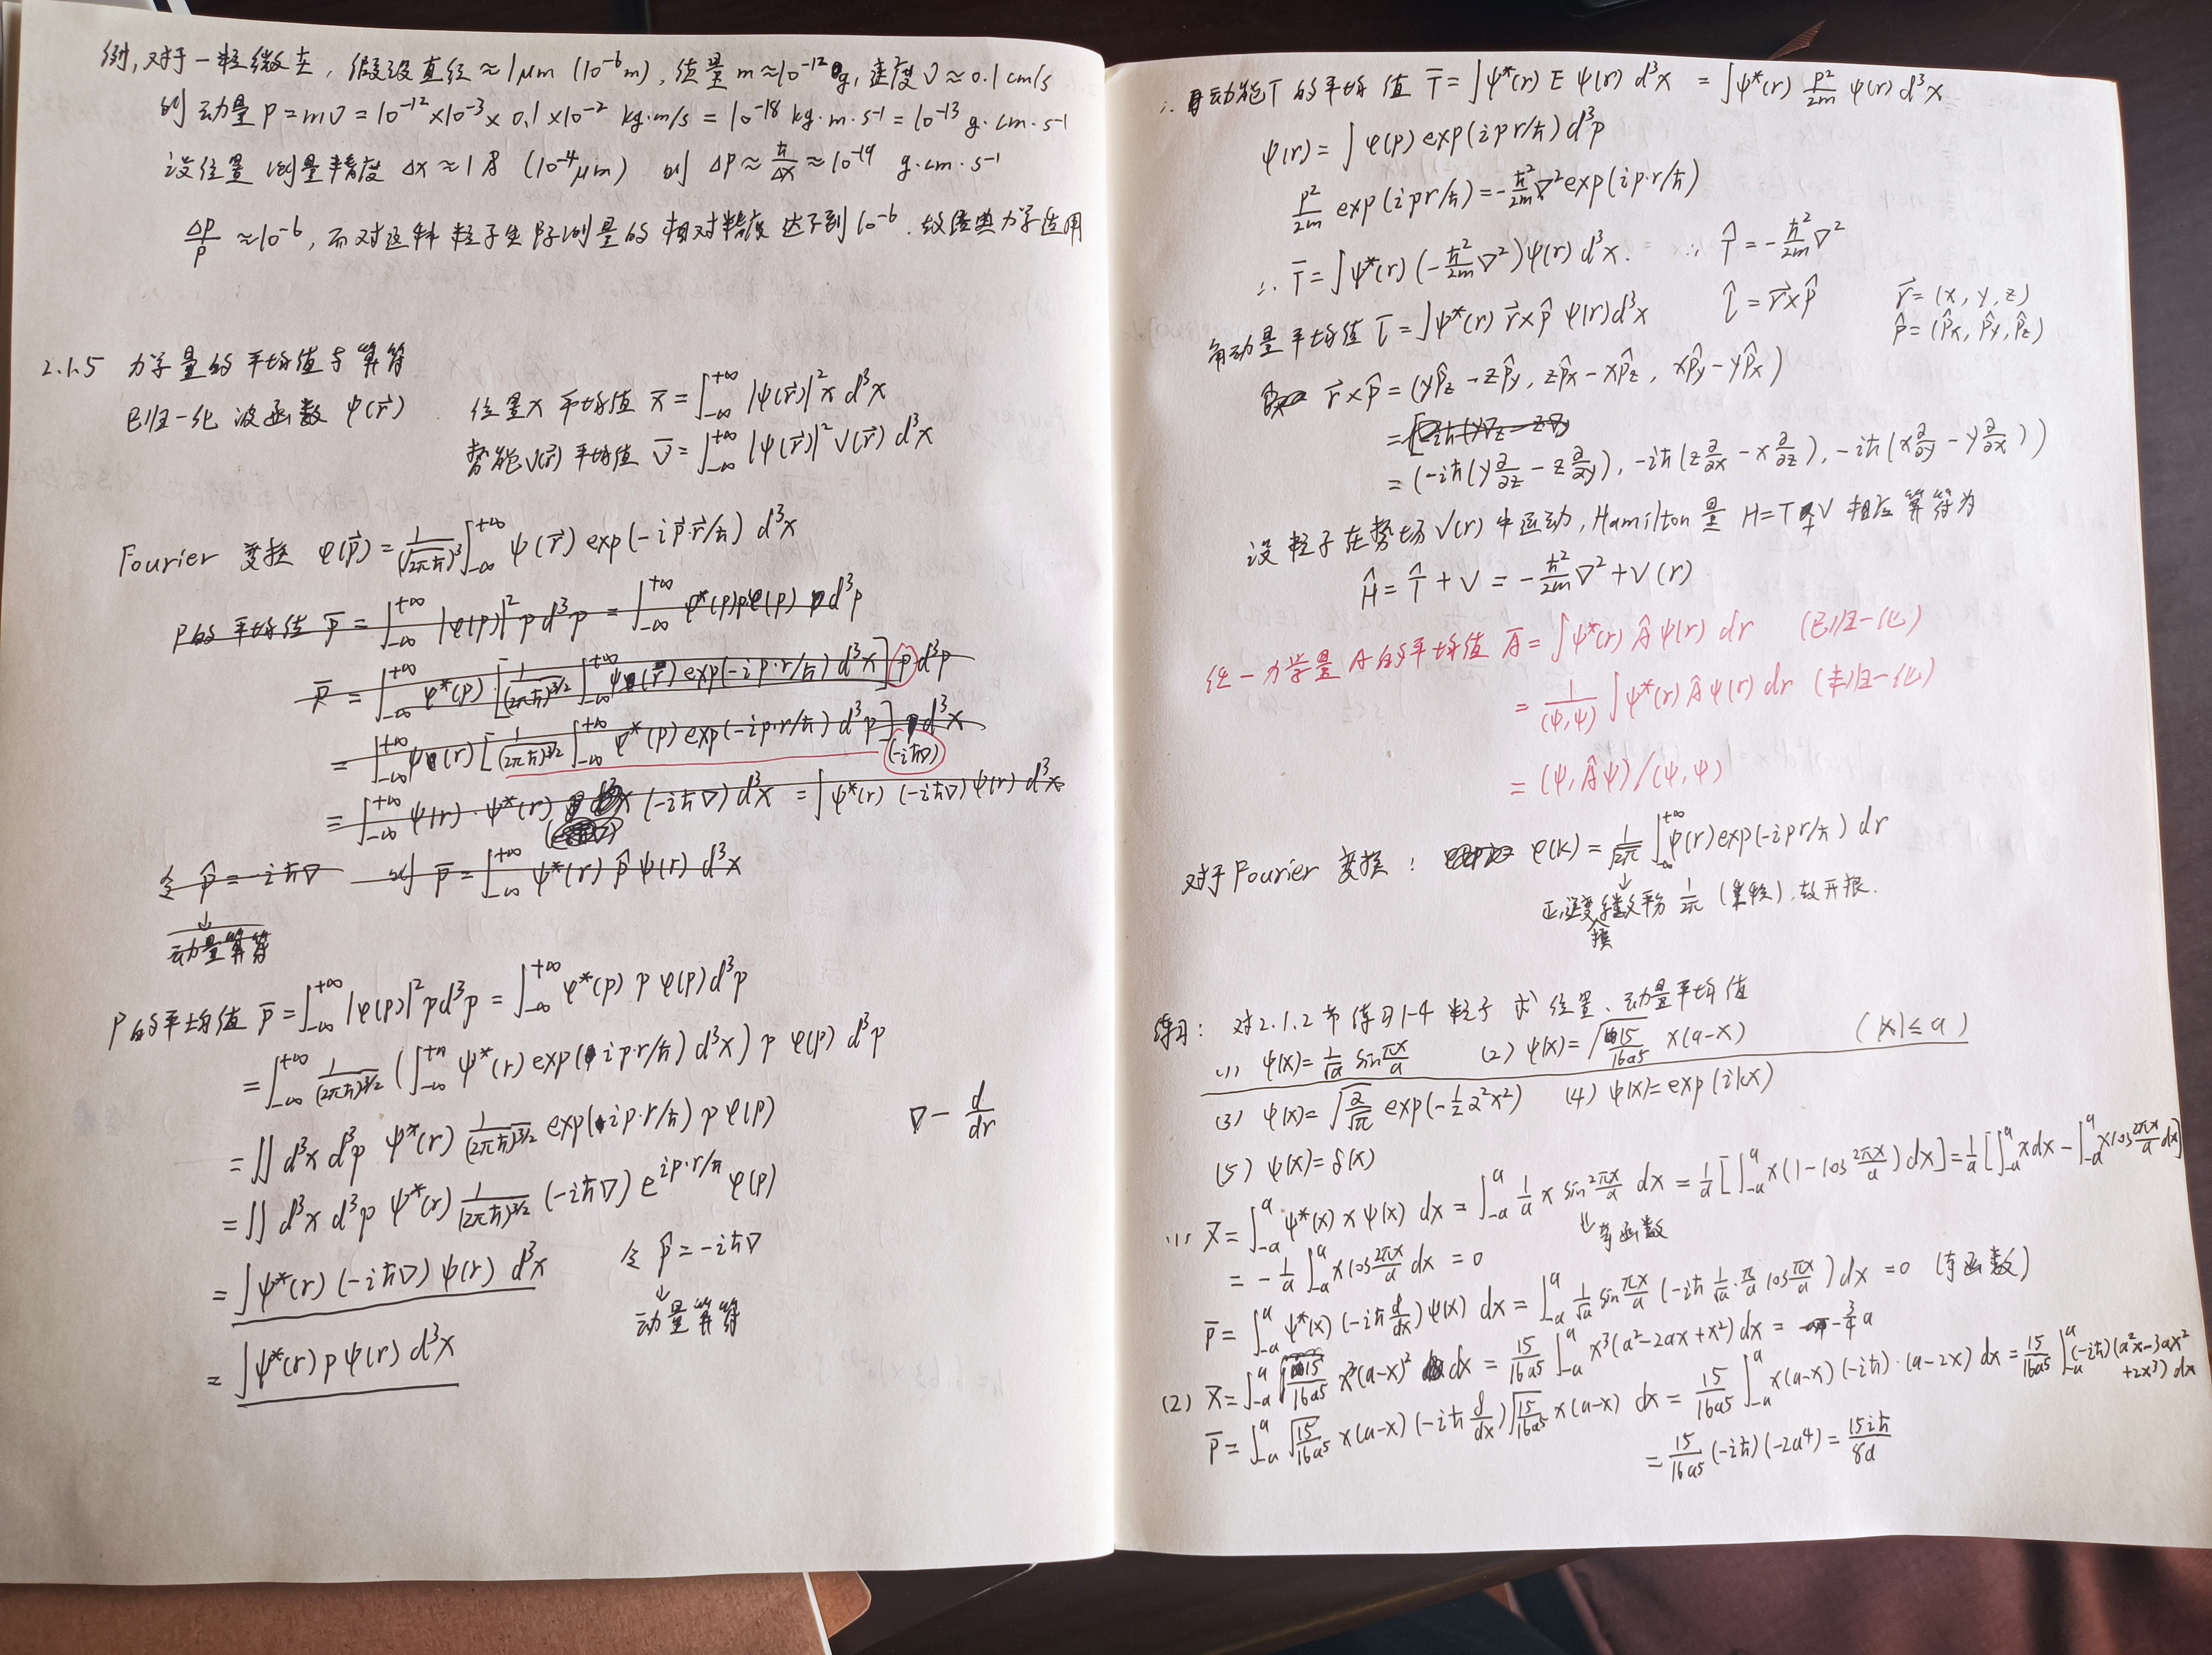 例,对于一粒微尘,假设直径≈1μm (10⁻⁶m),质量 m≈10⁻¹²g,速度 v≈0.1cm/s
则动量 p=mv=10⁻¹²×10⁻³×0.1×10⁻² kg·m/s=10⁻¹⁸ kg·m·s⁻¹=10⁻¹³ g·cm·s⁻¹
设位置测量精度 Δx≈1Å (10⁻⁴μm) 则 Δp≈ħ/Δx≈10⁻¹⁹ g·cm·s⁻¹
Δp/p≈10⁻⁶,而对这种粒子实际测量的相对精度达不到10⁻⁶.故经典力学适用
2.1.5 力学量的平均值与算符
已归一化波函数 ψ(r⃗). 位置x平均值 x̄=∫₋∞^{+∞}|ψ(r⃗)|²x d³x
势能V(r⃗)平均值 V̄=∫₋∞^{+∞}|ψ(r⃗)|²V(r⃗) d³x
Fourier 变换 φ(p⃗)=1/(√2πħ)³∫₋∞^{+∞}ψ(r⃗) exp(-ip⃗·r⃗/ħ) d³x
P的平均值 p̄=∫₋∞^{+∞}|φ(p)|²p d³p=∫₋∞^{+∞}φ*(p)pφ(p) d³p
p̄=∫₋∞^{+∞}φ*(p)·[1/(2πħ)^{3/2}∫₋∞^{+∞}ψ(r) exp(-ip·r/ħ) d³x] p d³p
=∫₋∞^{+∞}ψ(r)[1/(2πħ)^{3/2}∫₋∞^{+∞}φ*(p) exp(-ip·r/ħ) d³p] p d³x
(-iħ∇)
=∫₋∞^{+∞}ψ(r)·ψ*(r) (-iħ∇) d³x =∫ψ*(r) (-iħ∇) ψ(r) d³x
令 p̂=-iħ∇ 则 p̄=∫₋∞^{+∞}ψ*(r) p̂ ψ(r) d³x
↓
动量算符
P的平均值 p̄=∫₋∞^{+∞}|φ(p)|²p d³p=∫₋∞^{+∞}φ*(p) p φ(p) d³p
=∫₋∞^{+∞}1/(2πħ)^{3/2}(∫₋∞^{+∞}ψ*(r) exp(ip·r/ħ) d³x) p φ(p) d³p
=∬d³x d³p ψ*(r) 1/(2πħ)^{3/2} exp(ip·r/ħ) p φ(p) ∇-d/dr
=∬d³x d³p ψ*(r) 1/(2πħ)^{3/2} (-iħ∇) e^{ip·r/ħ} φ(p)
=∫ψ*(r) (-iħ∇) ψ(r) d³x 令 p̂=-iħ∇
↓
动量算符
=∫ψ*(r) p ψ(r) d³x
∴动能T的平均值 T̄=∫ψ*(r) E ψ(r) d³x =∫ψ*(r) p²/2m ψ(r) d³x
ψ(r)=∫φ(p) exp(ipr/ħ) d³p
p²/2m exp(ipr/ħ)=-ħ²/2m∇²exp(ip·r/ħ)
∴T̄=∫ψ*(r) (-ħ²/2m∇²)ψ(r) d³x. ∴T̂=-ħ²/2m∇²
角动量平均值 l̄=∫ψ*(r) r⃗×p̂ ψ(r)d³x l̂=r⃗×p̂ r⃗=(x,y,z)
p̂=(p̂x,p̂y,p̂z)
r⃗×p̂=(yp̂z-zp̂y, zp̂x-xp̂z, xp̂y-yp̂x)
=(-iħ(y∂/∂z-z∂/∂y), -iħ(z∂/∂x-x∂/∂z), -iħ(x∂/∂y-y∂/∂x))
设粒子在势场V(r)中运动,Hamilton量 H=T+V 相应算符为
Ĥ=T̂+V=-ħ²/2m∇²+V(r)
任一力学量A的平均值 Ā=∫ψ*(r) Â ψ(r) dr (已归一化)
=1/(ψ,ψ)∫ψ*(r) Â ψ(r) dr (未归一化)
=(ψ,Âψ)/(ψ,ψ)
对于Fourier 变换: φ(k)=1/√2π∫₋∞^{+∞}ψ(r)exp(-ipr/ħ) dr
↓
正逆变换系数平分 1/2π (乘积),故开根.
练习: 对2.1.2节练习1-4粒子求位置、动量平均值
(1) ψ(x)=1/√a sin πx/a (2) ψ(x)=√(15/16a⁵) x(a-x) (|x|≤a)
(3) ψ(x)=√(α/√π) exp(-½α²x²) (4) ψ(x)=exp(ikx)
(5) ψ(x)=δ(x)
(1) x̄=∫₋ₐ^a ψ*(x) x ψ(x) dx=∫₋ₐ^a 1/a x sin² πx/a dx=1/a[∫₋ₐ^a x(1-cos 2πx/a) dx]=1/a[∫₋ₐ^a xdx-∫₋ₐ^a xcos 2πx/a dx]
↓奇函数
=-1/a∫₋ₐ^a xcos 2πx/a dx=0
p̄=∫₋ₐ^a ψ*(x) (-iħ d/dx) ψ(x) dx=∫₋ₐ^a 1/√a sin πx/a (-iħ 1/√a·π/a cos πx/a) dx=0 (奇函数)
(2) x̄=∫₋ₐ^a 15/16a⁵ x³(a-x)² dx=15/16a⁵∫₋ₐ^a x³(a²-2ax+x²) dx=-3/4a
p̄=∫₋ₐ^a √(15/16a⁵) x(a-x) (-iħ d/dx)√(15/16a⁵) x(a-x) dx=15/16a⁵∫₋ₐ^a x(a-x) (-iħ)·(a-2x) dx=15/16a⁵∫₋ₐ^a (-iħ)(a²x-3ax²+2x³) dx
=15/16a⁵(-iħ)(-2a⁴)=15iħ/8a